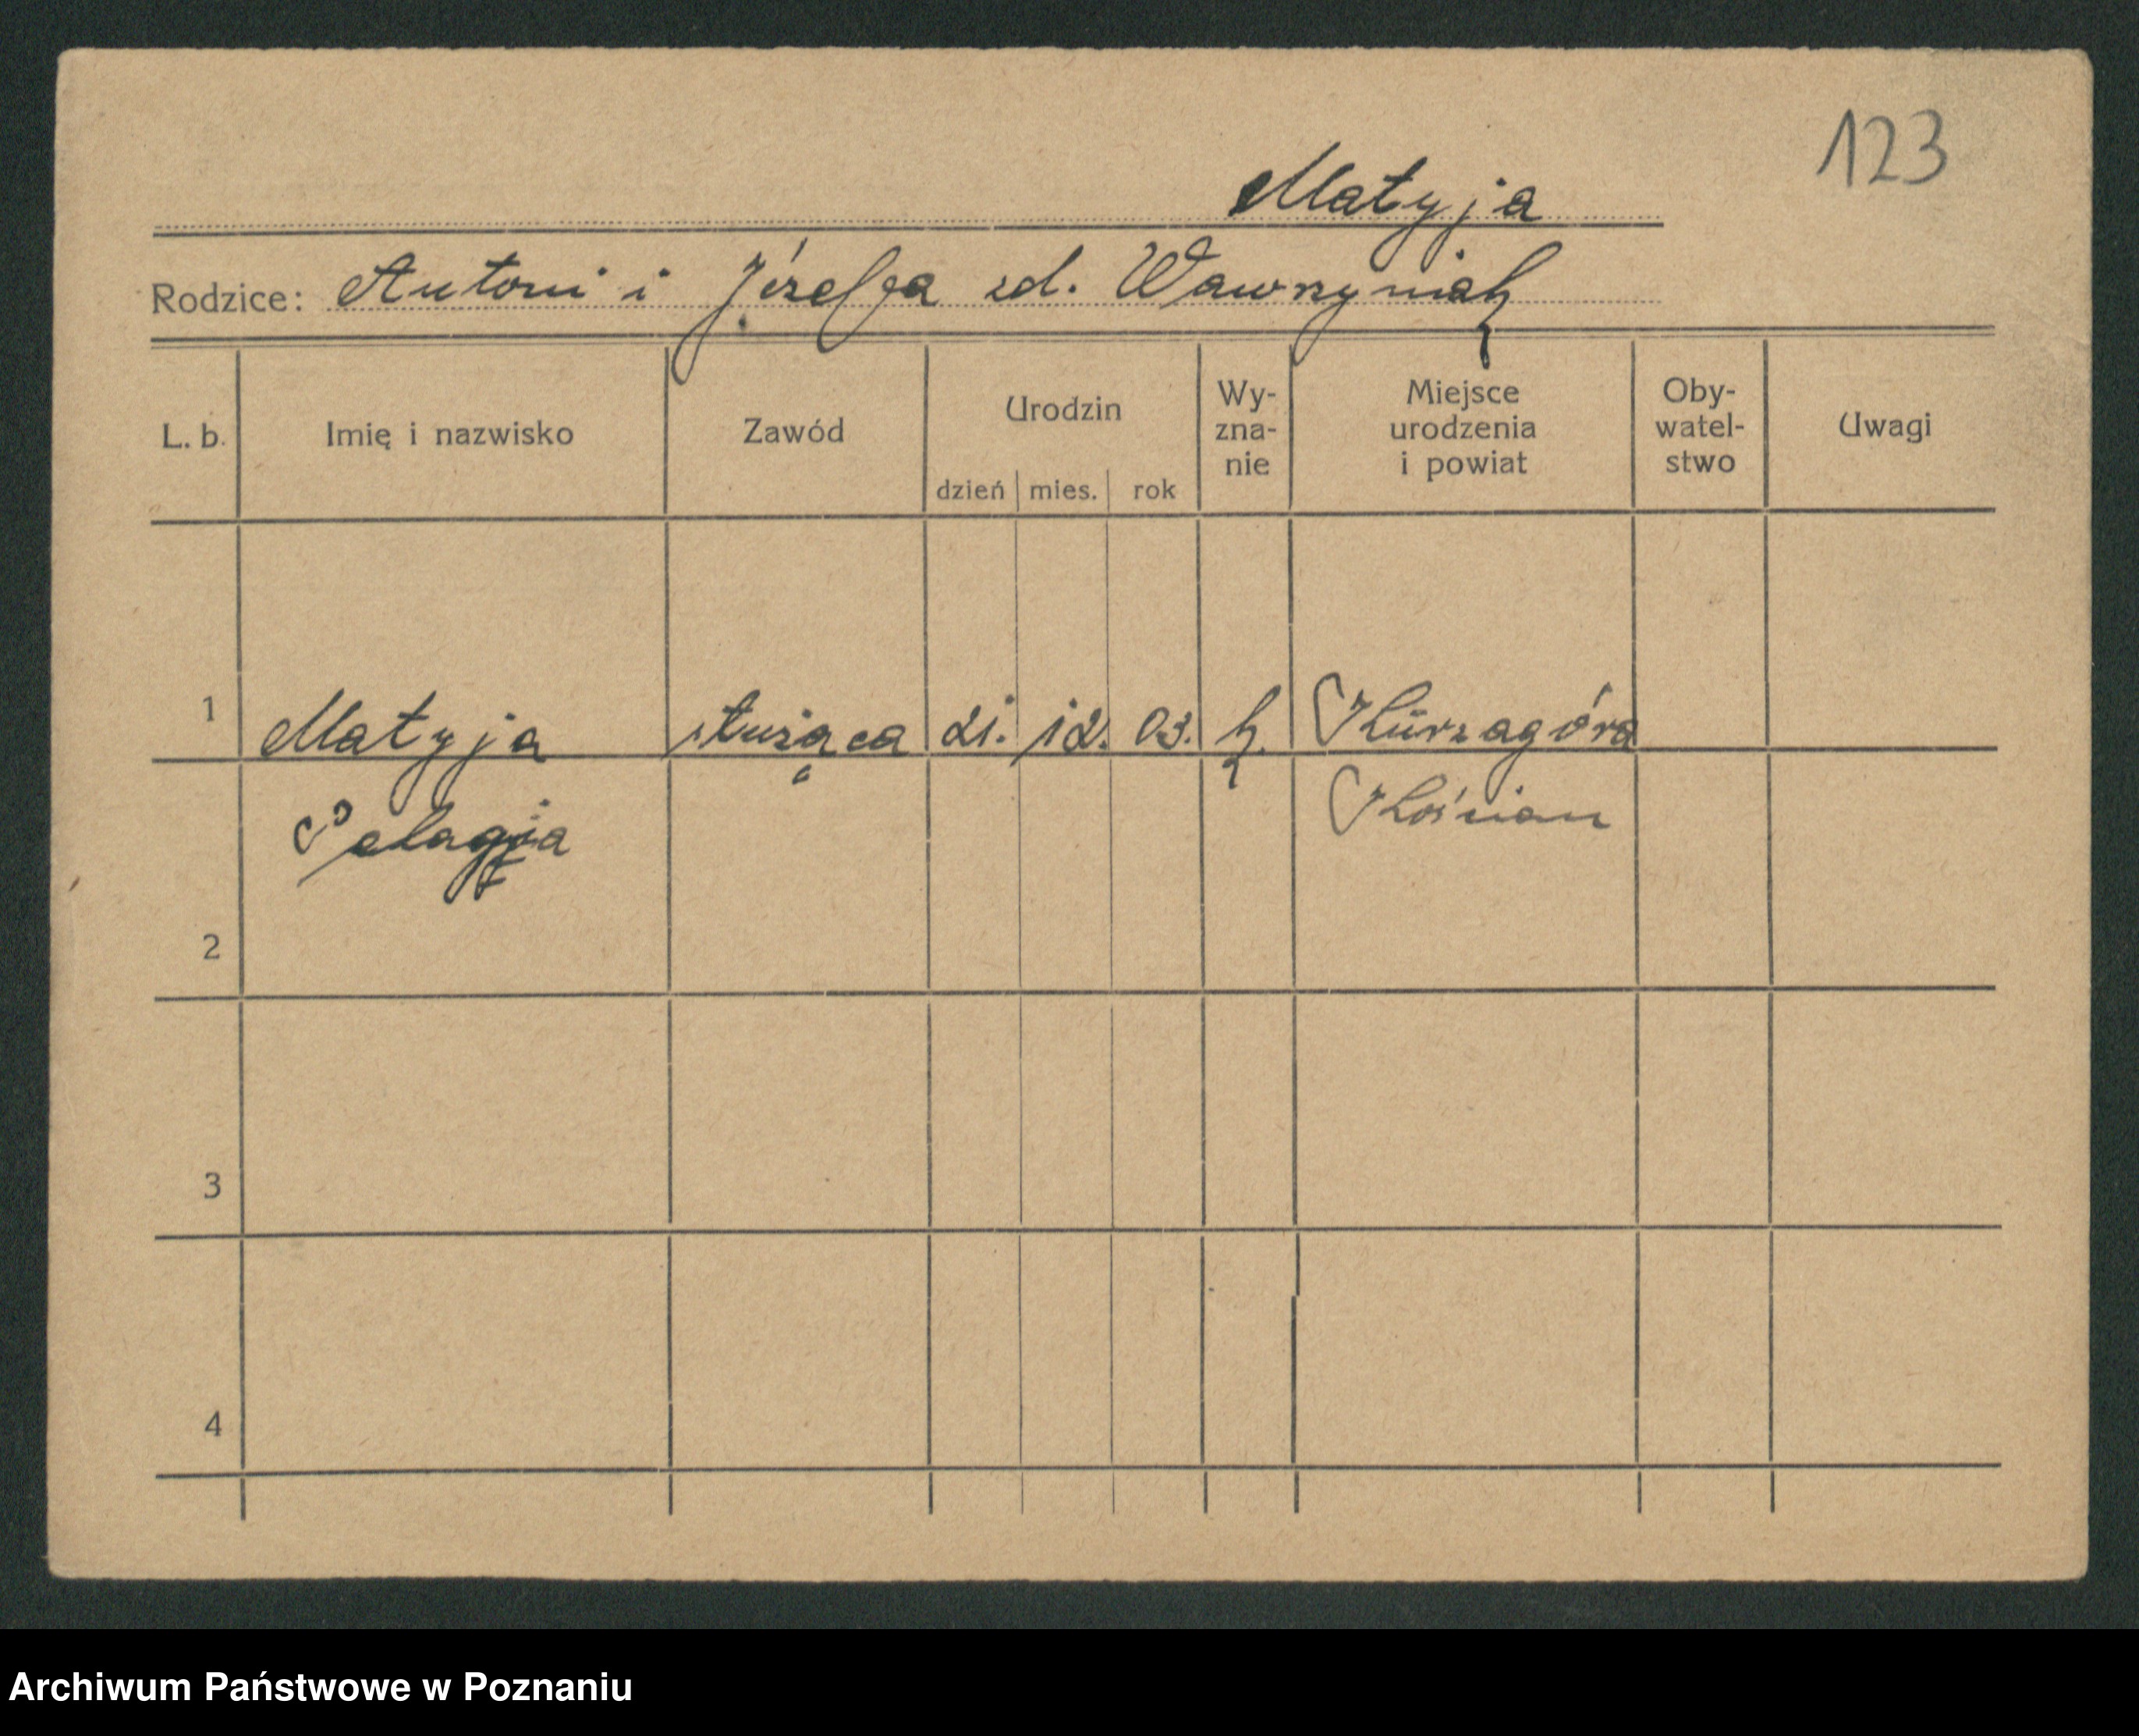 123
Matyja
Rodzice: Antoni i Józefa zd. Wawrzyniak
L. b. Imię i nazwisko Zawód Urodzin dzień mies. rok Wy-zna-nie Miejsce urodzenia i powiat Oby-watel-stwo Uwagi
1 Matyja służąca 21. 12. 03. k. Kurzagóra
Pelagja Kościan
2
3
4
Archiwum Państwowe w Poznaniu